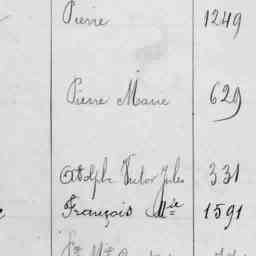 Pierre 1249
Pierre Marie 629
Adolphe Victor Jules 331
François Mie 1591